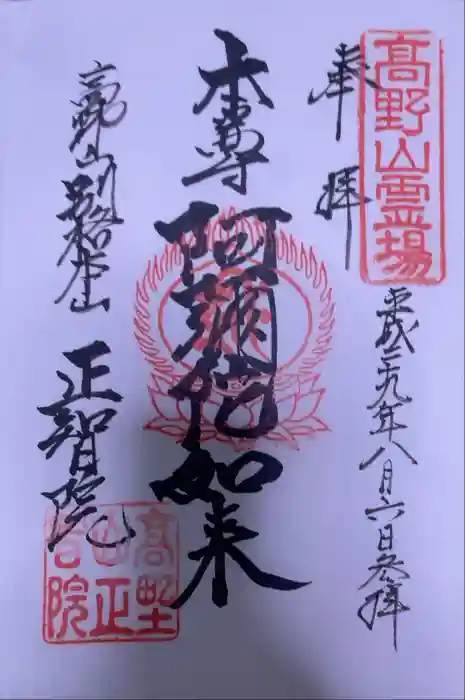 高野山霊場
奉拝
平成二十九年八月六日参拝
本尊 阿彌陀如来
高野山別格本山
正智院
高野山正智院